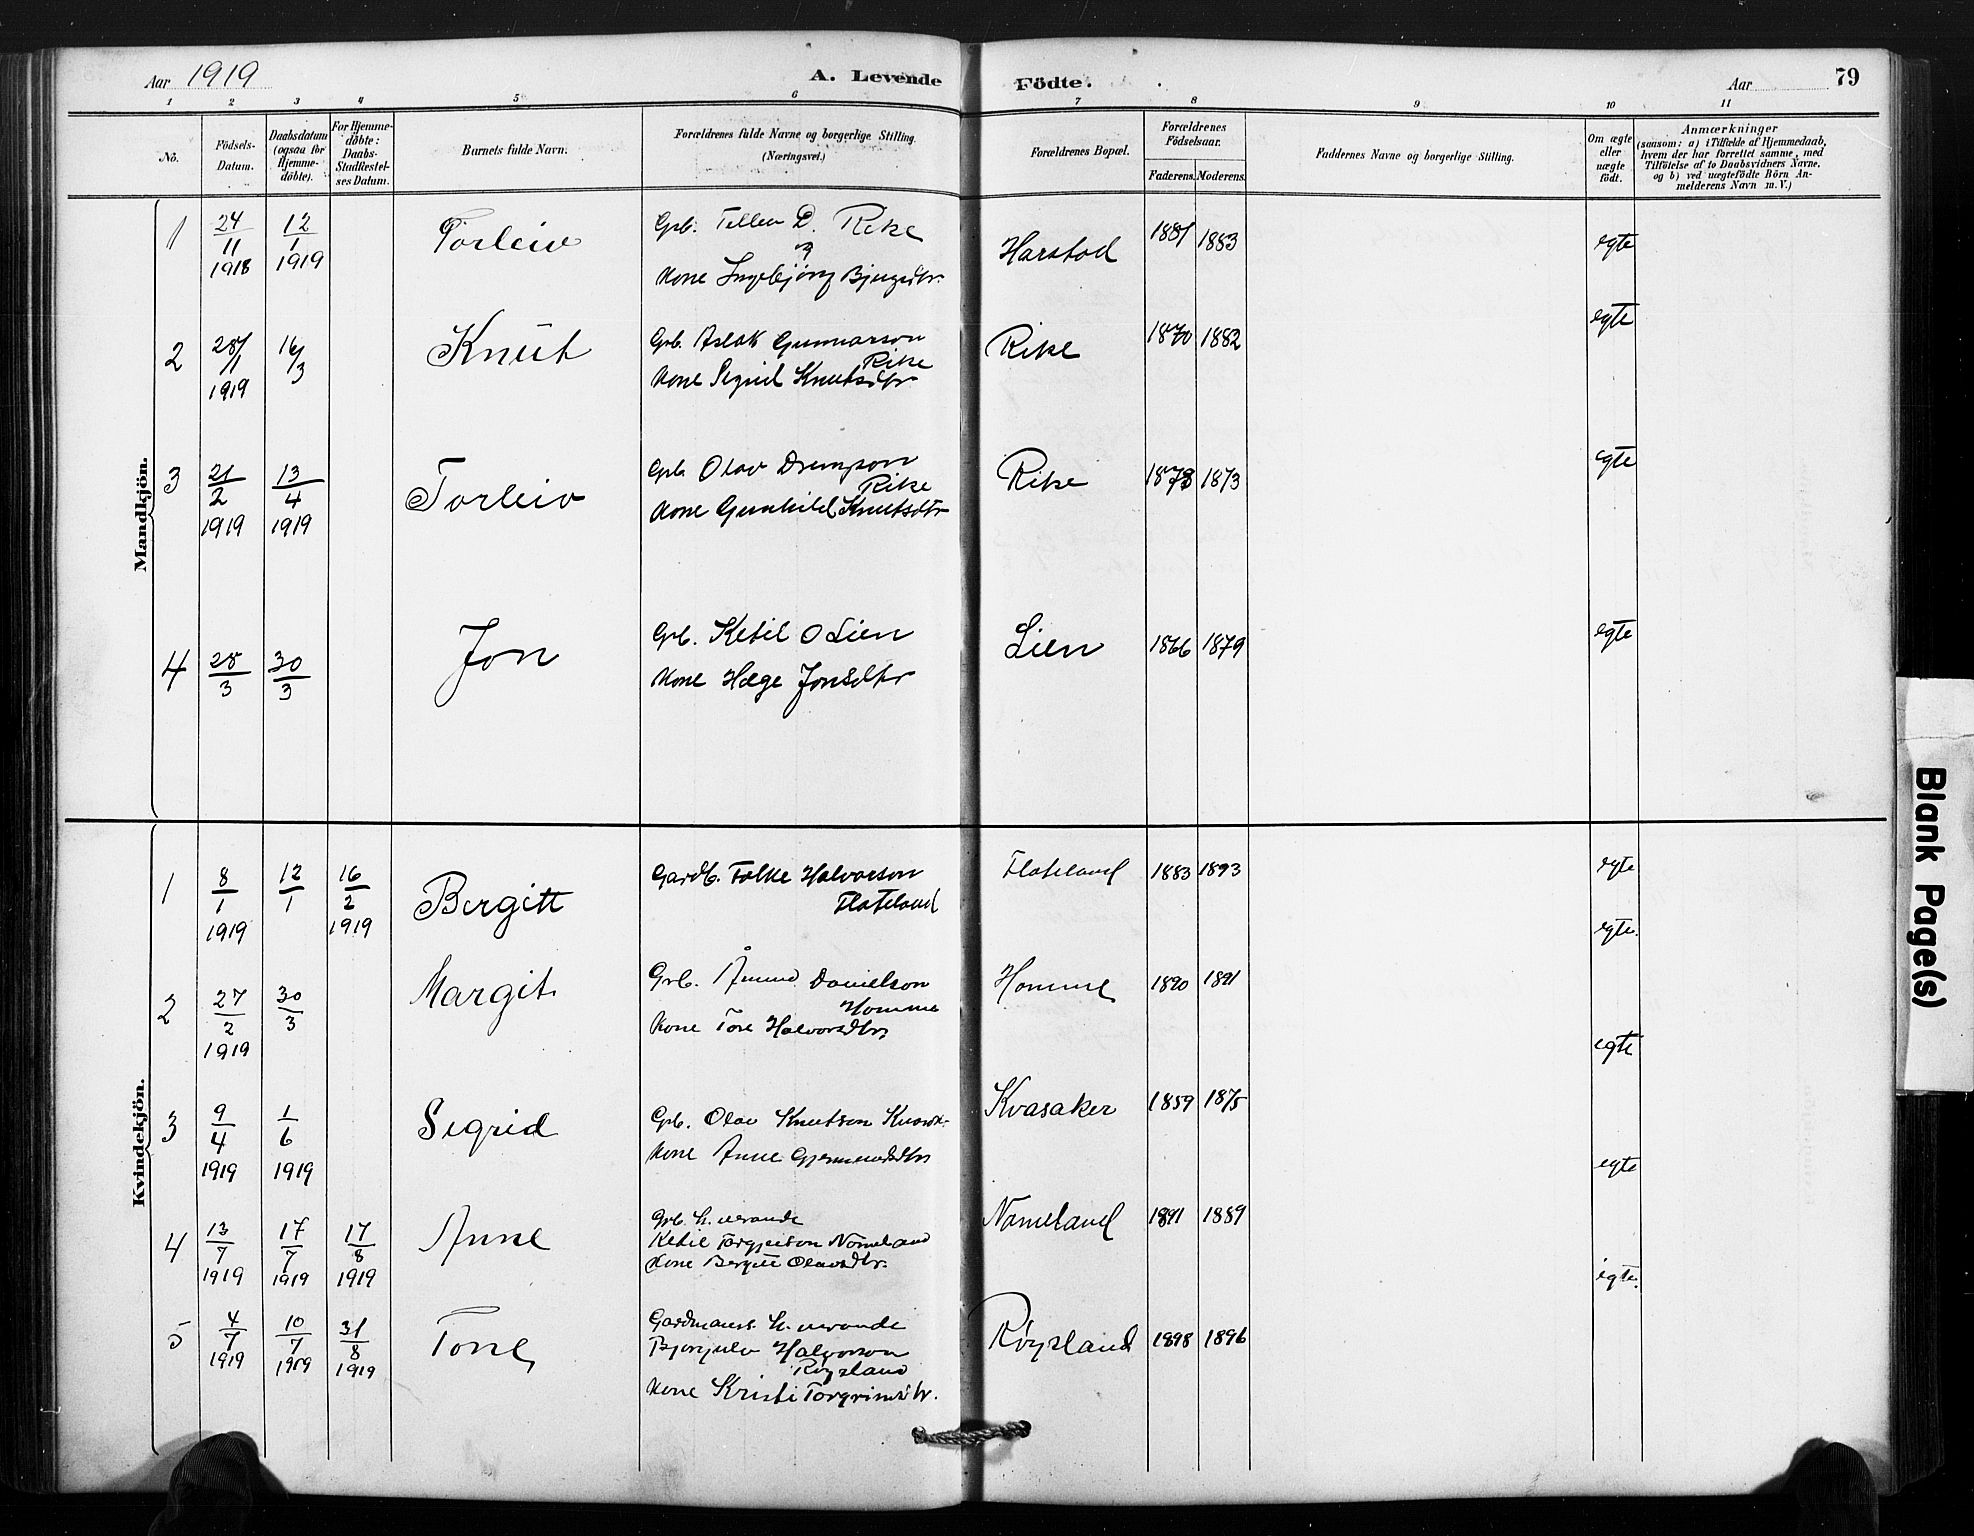 Aar 1919
A. Levende
Födte.
Aar
79
1 2 3 4 5 6 7 8 9 10 11
No.
Födsels-
Datum.
Daabsdatum
(ogsaa for
Hjemme-
döbte).
For Hjemme-
döbte:
Daabs-
Stadfestel-
ses Datum.
Barnets fulde Navn.
Forældrenes fulde Navne og borgerlige Stilling.
(Næringsvei.)
Forældrenes Bopæl.
Forældrenes
Födselsaar.
Faderens. Moderens.
Faddernes Navne og borgerlige Stilling.
Om ægte
eller
uægte
födt.
Anmærkninger
(saasom: a) i Tilfælde af Hjemmedaab,
hvem der har forrettet samme, med
Tilföielse af to Daabsvidners Navne.
og b) ved uægtefödte Börn An-
melderens Navn m. V.)
Mandkjön.
1 24/11 1918 12/1 1919 Torleiv
Grb. Tellev D. Rike
Kone Ingebjörg
Harstad 1881 1883 egte
2 28/1 1919 16/3 Knut
Grb. Aslak Gunnarson
Rike
Kone Sigrid Knutsdtr
Rike 1870 1882 egte
3 21/2 1919 13/4 1919 Torleiv
Grb. Olav
Rike
Kone Gunhild Knutsdtr
Rike 1873 egte
4 28/3 30/3 Jon
Grb. Ketil O Lien
Kone Hæge Jonsdtr
Lien 1866 1879 egte
Kvindekjön.
1 8/1 1919 12/1 16/2 1919 Bergitt
Gardb. Folke Halvorson
Flateland
Flateland 1883 1893 egte
egte.
2 27/2 1919 30/3 Margit
Grb. Åmund Danielson
Homme
Kone Tore Halvorsdtr
Homme 1890 1891
egte
3 9/4 1919 1/6 1919 Sigrid
Grb. Olav Knutson
Kone Anne Gjermundsdtr
Kvasaker 1859 1875
egte
4 13/7 1919 17/7 1919 17/8 1919 Anne
Grb. h. verande
Ketil Torgjeison Nomeland
Kone Bergit Olavsdtr.
Nomeland 1891 1889
egte.
5 4/7 1919 10/7 1919 31/8 1919 Tone
Gardmanns h. verande
Bjorgulv Halvorson
Røysland
Kone Kristi Torgrimsdtr.
Røysland 1898 1896
Blank Page(s)